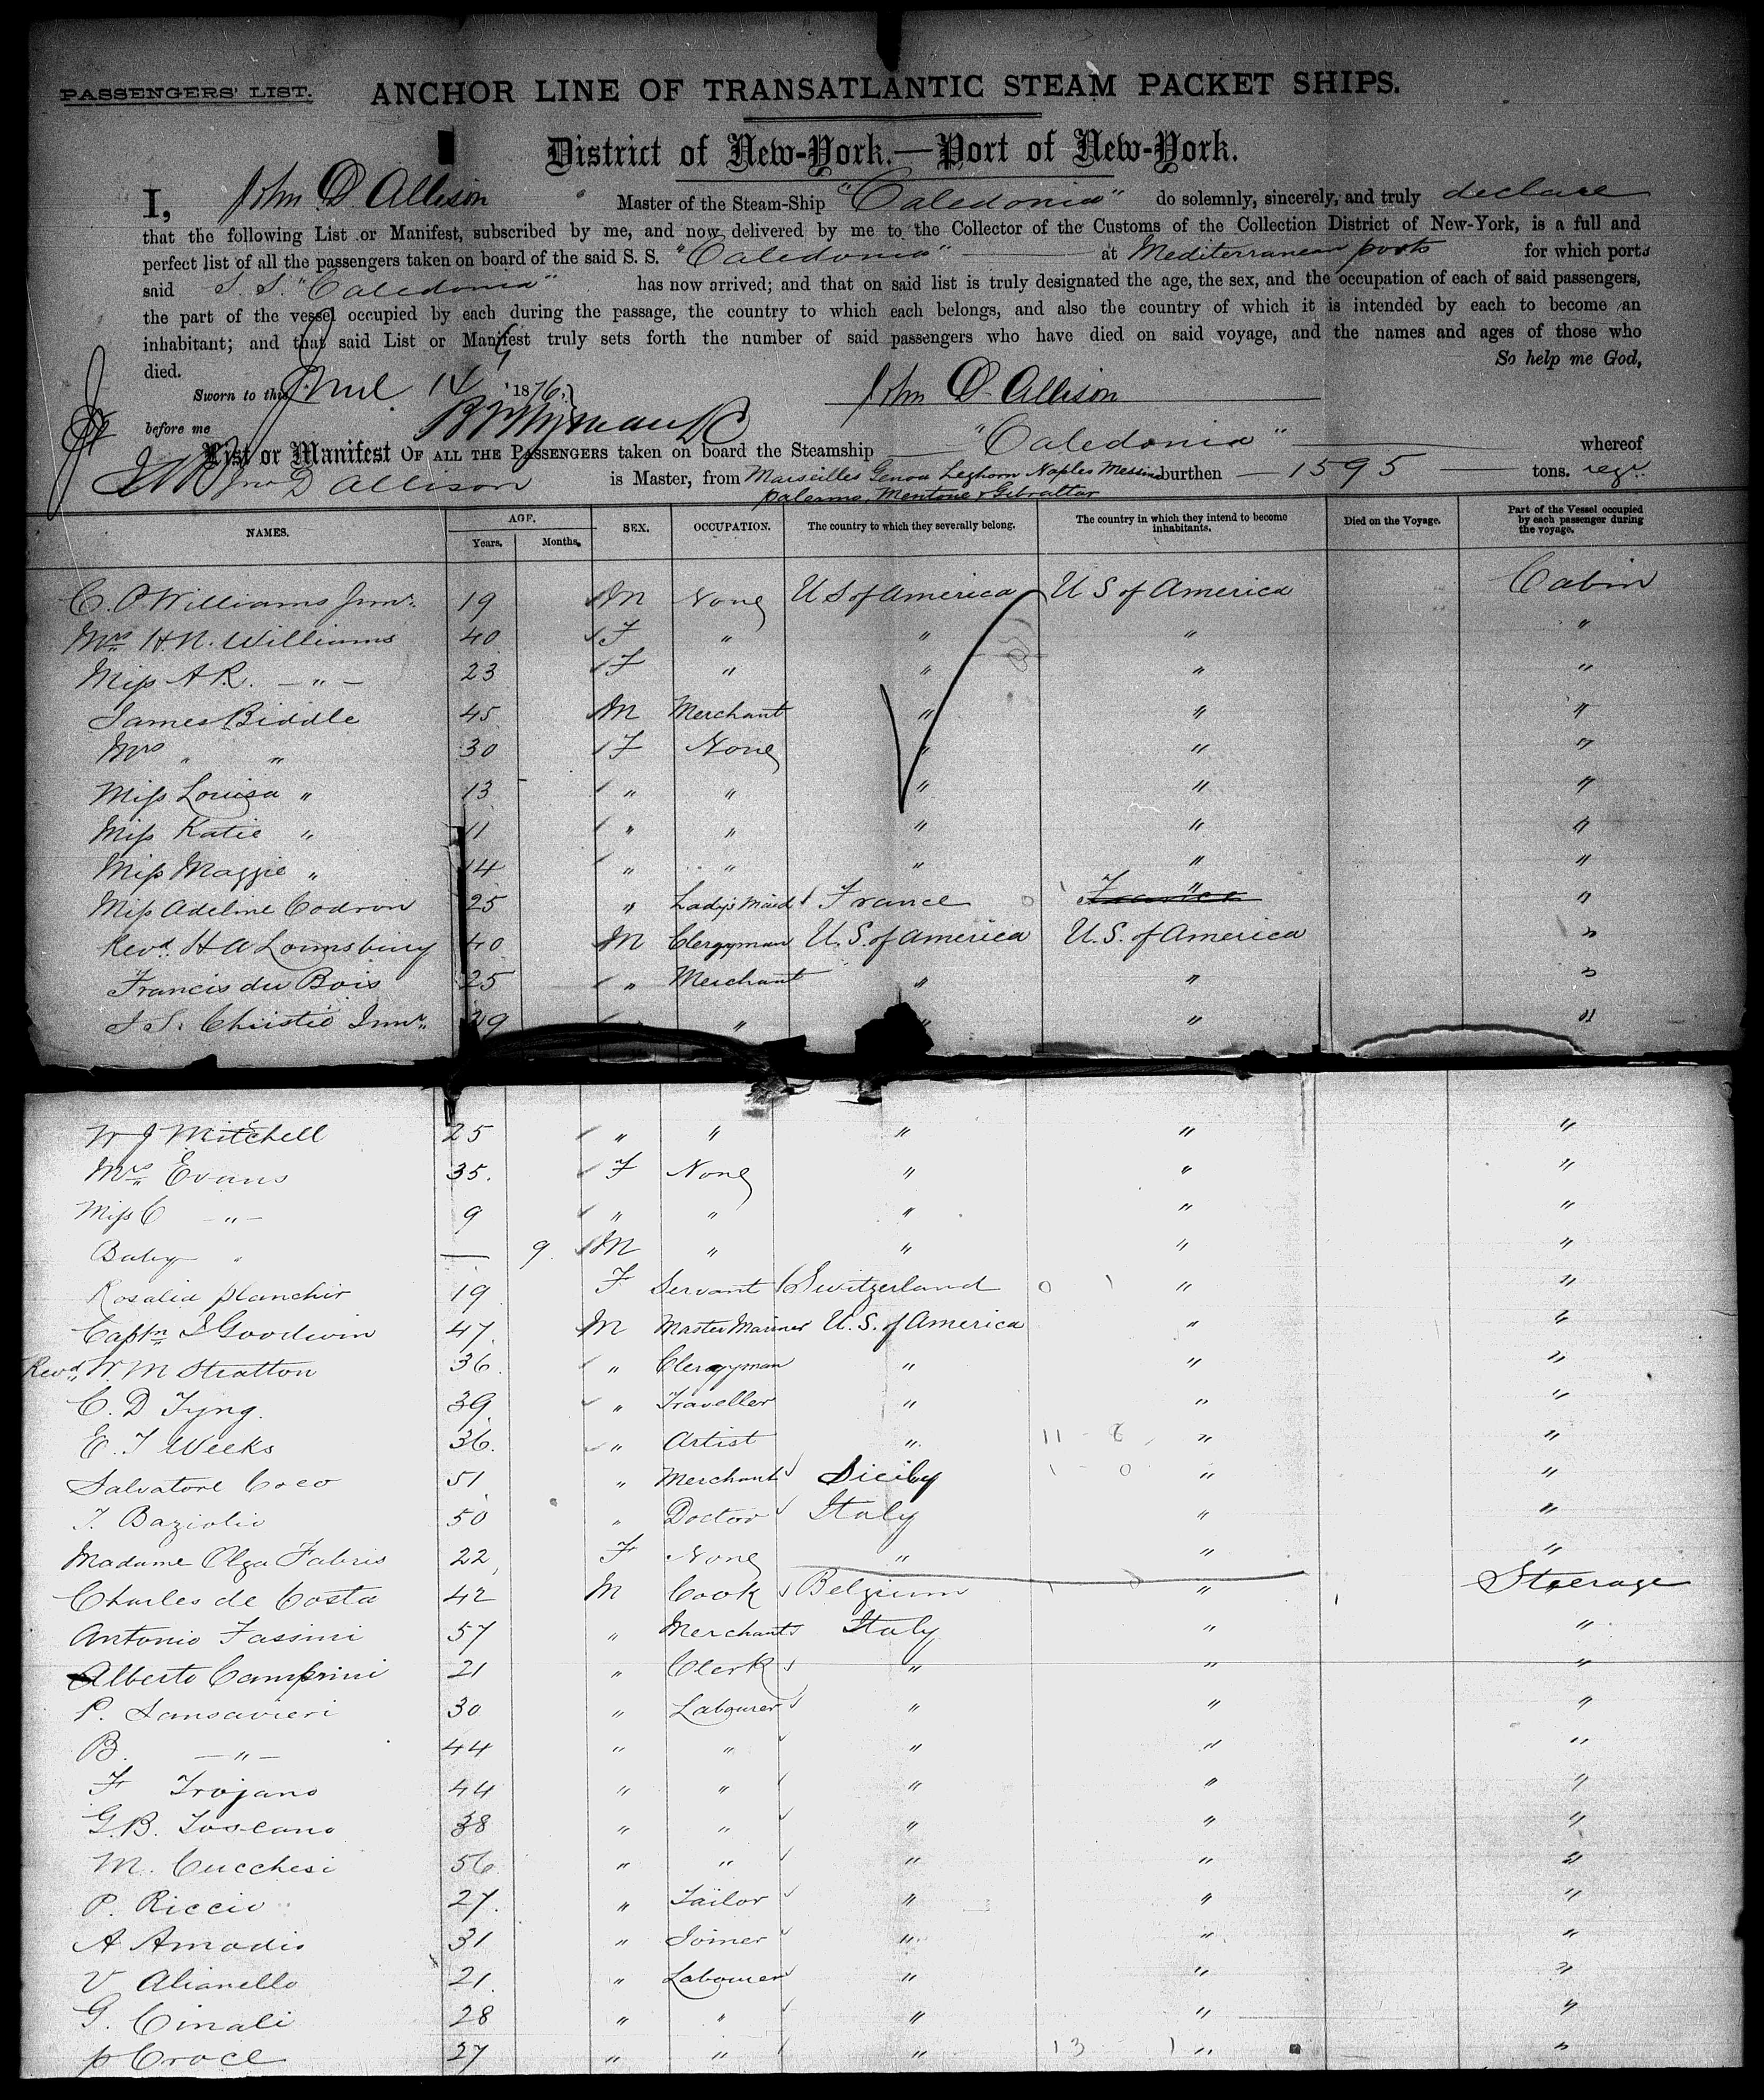 PASSENGERS' LIST. ANCHOR LINE OF TRANSATLANTIC STEAM PACKET SHIPS.
District of New-York.—Port of New-York.
I, John D. Allison Master of the Steam-Ship "Caledonia" do solemnly, sincerely, and truly declare
that the following List or Manifest, subscribed by me, and now delivered by me to the Collector of the Customs of the Collection District of New-York, is a full and
perfect list of all the passengers taken on board of the said S. S. "Caledonia" at Mediterranean ports for which ports
said S. S. "Caledonia" has now arrived; and that on said list is truly designated the age, the sex, and the occupation of each of said passengers,
the part of the vessel occupied by each during the passage, the country to which each belongs, and also the country of which it is intended by each to become an
inhabitant; and that said List or Manifest truly sets forth the number of said passengers who have died on said voyage, and the names and ages of those who
died. So help me God,
Sworn to this 14 1876, John D. Allison
before me
List or Manifest OF ALL THE PASSENGERS taken on board the Steamship "Caledonia" whereof
Jno D Allison is Master, from Marseilles Genoa Leghorn Naples Messina burthen 1595 tons. regr.
Palermo, Mentone & Gibraltar
NAMES. AGE. Years. Months. SEX. OCCUPATION. The country to which they severally belong. The country in which they intend to become inhabitants. Died on the Voyage. Part of the Vessel occupied by each passenger during the voyage.
C. O. Williams Junr. 19 M None U S of America U S of America Cabin
Mrs H. N. Williams 40 F " " " "
Miss A R. — " — 23 F " " " "
James Biddle 45 M Merchant " " "
Mrs " " 30 F None " " "
Miss Louisa " 13 " " " " "
Miss Katie " 11 " " " " "
Miss Maggie " 14 " " " " "
Miss Adeline Codron 25 " Lady's Maid France France " "
Revd. H A Lounsbury 40 M Clergyman U.S. of America U.S. of America "
Francis du Bois 25 " Merchant " " "
J S. Christie Junr. 29 " " " "
W J Mitchell 25 " " " " "
Mrs Evans 35. F None " " "
Miss C — " — 9 " " " " "
Baby " — 9 M " " " "
Rosalia Planchir 19 F Servant Switzerland 0 1 " "
Captn J Goodwin 47. M Master Mariner U.S. of America " "
Revd. W. M Stratton 36. " Clergyman " " "
C. D Tyng. 39. " Traveller " " "
E. T Weeks 36. " Artist " 11 - 8 " "
Salvatore Coco 51 " Merchant Sicily 1 - 0 " "
T. Baziolio 50 " Doctor Italy " "
Madame Olga Fabris 22, F None " " "
Charles de Costa 42 M Cook Belgium " Steerage
Antonio Fassini 57 " Merchant Italy " "
Alberto Camprini 21 " Clerk " " "
P. Sansavieri 30 " Labourer " " "
B. — " — 44 " " " " "
F Trojano 44 " " " " "
G. B. Toscano 38 " " " " "
M. Cucchesi 56 " " " " "
P. Riccio 27. " Tailor " " "
A Amodio 31 " Joiner " " "
V Alianello 21. " Labourer " " "
G. Cinali 28 " " " " "
P Croce 27 " " " 13 1 " "